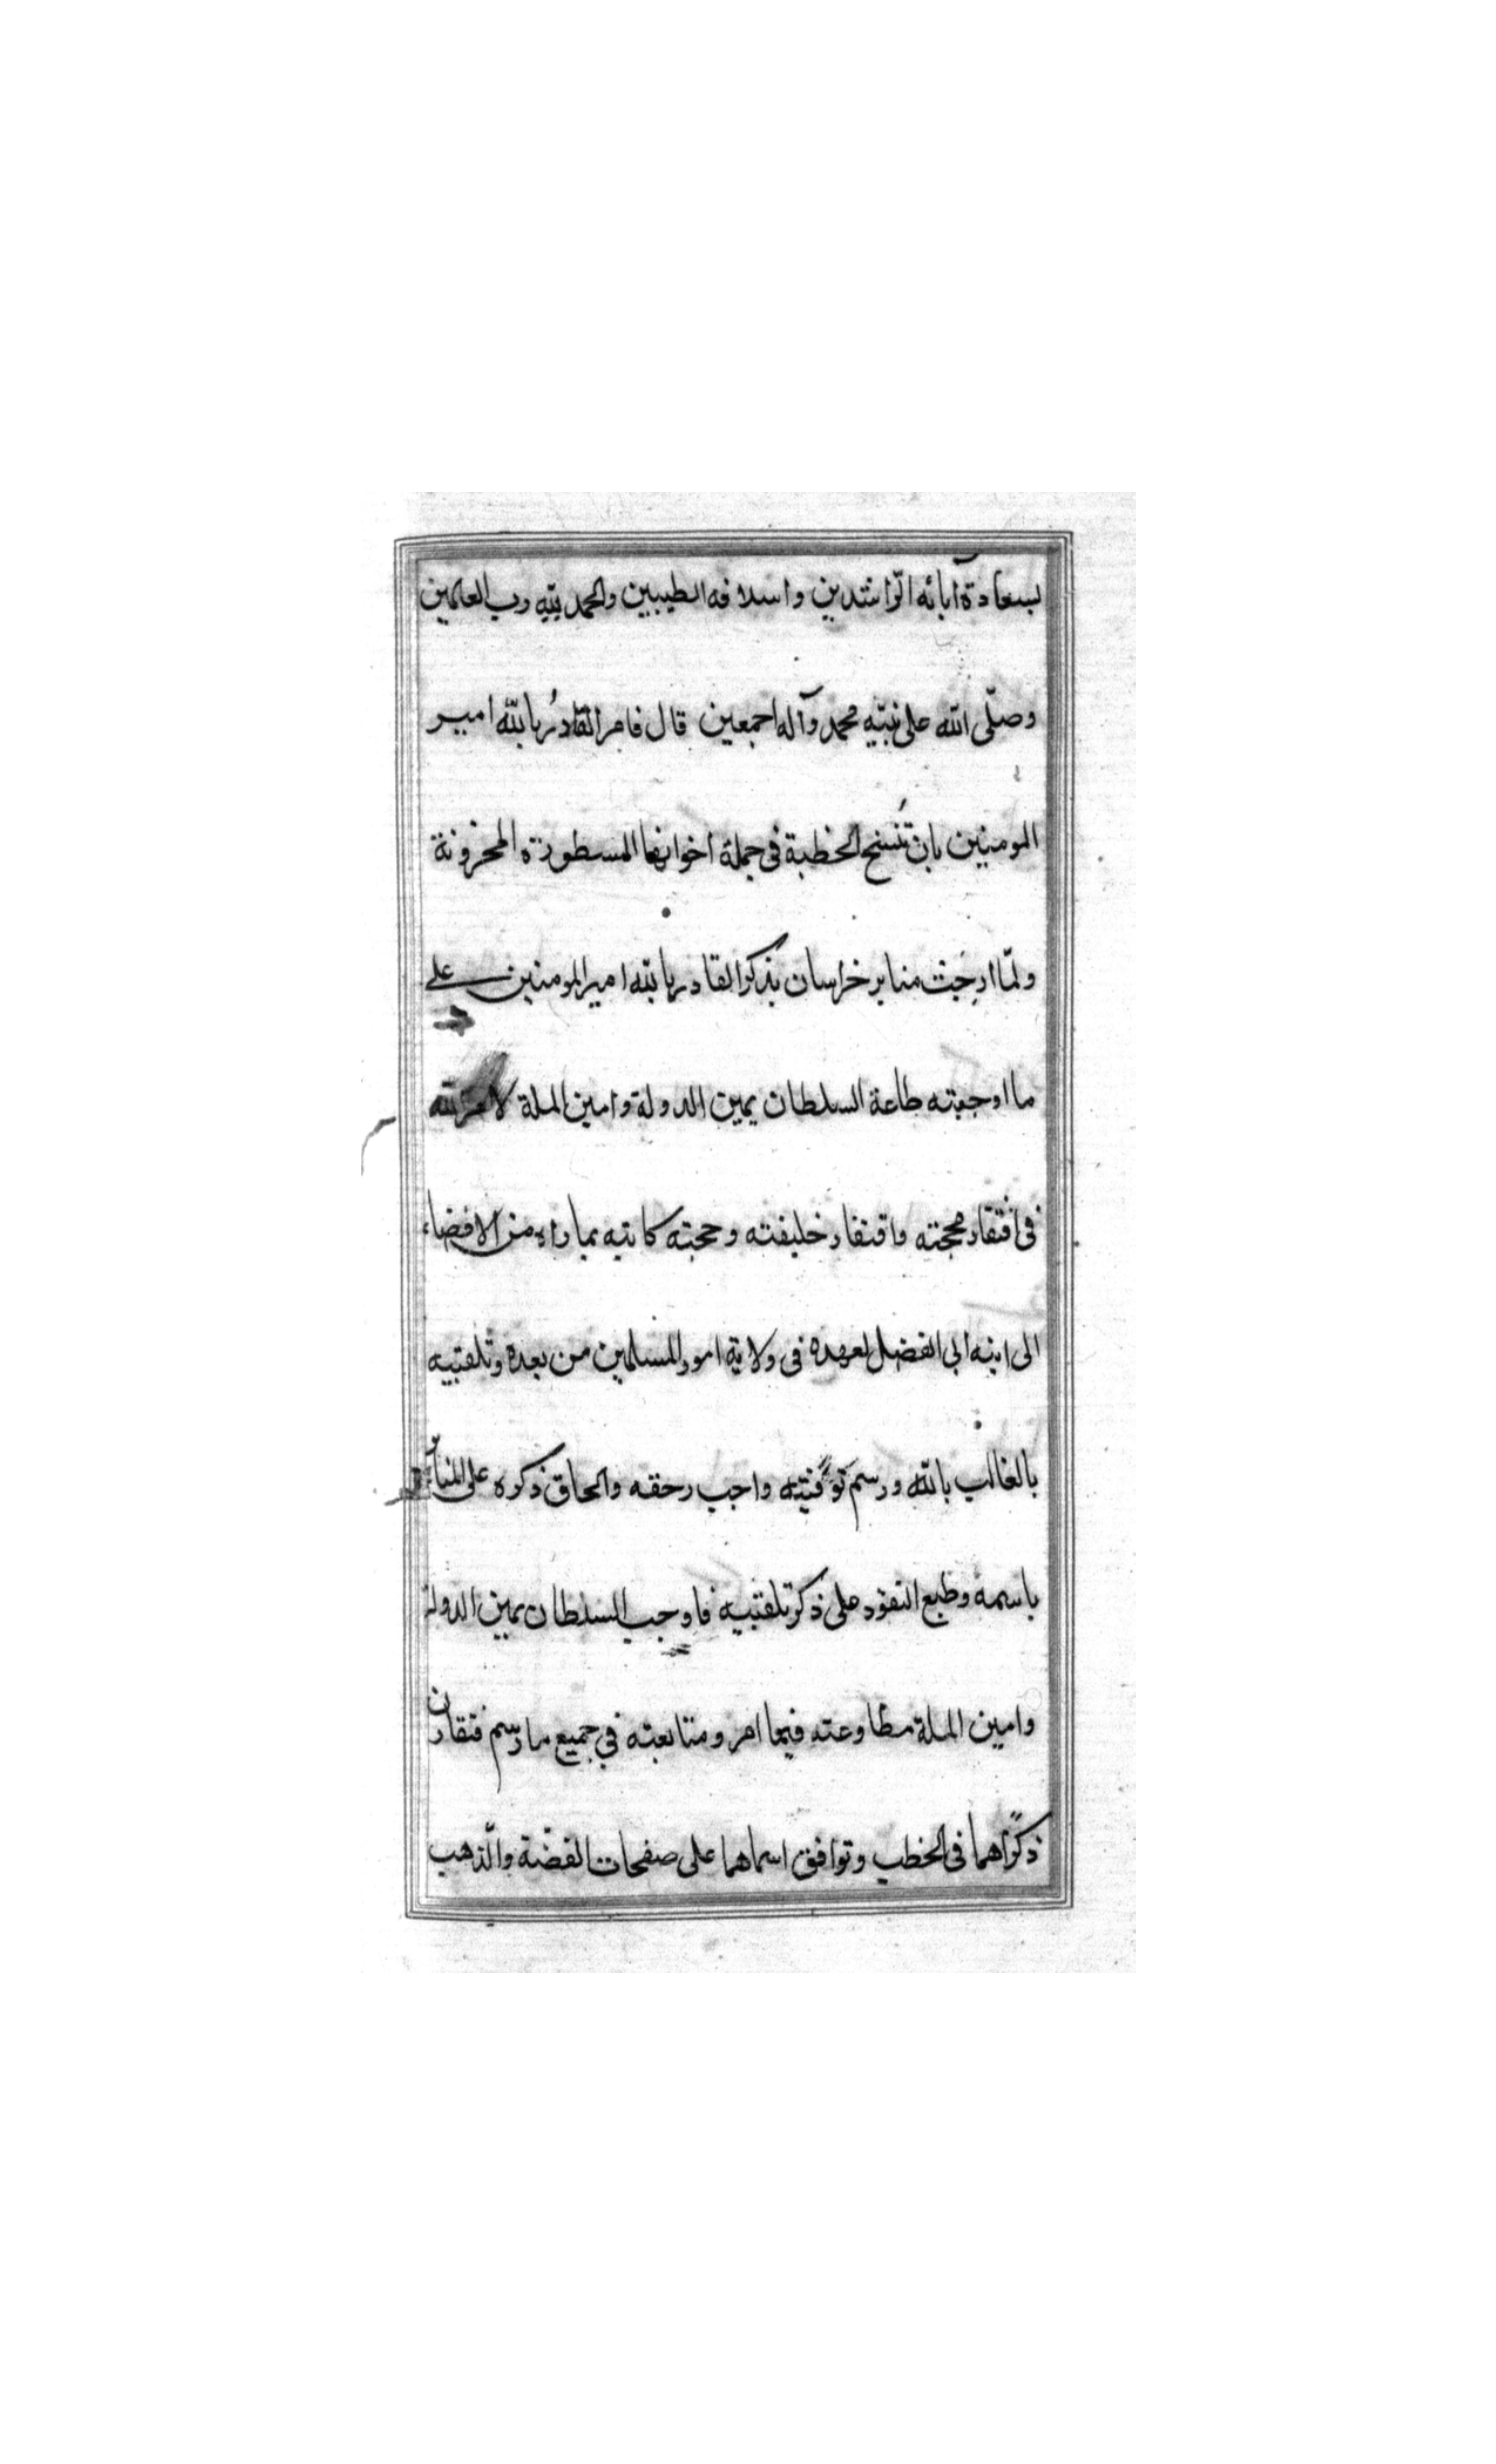 بسعادة آبائه الرّاشدين واسلافه الطيبين والحمد لله رب العالمين
وصلّى الله على نبيّه محمد وآله اجمعين قال فامر القادرُ بالله امير
المومنين بان تُنسخ الخطبة فى جملة اخواتها المسطورة المخزونة
ولمّا ارجَت منابر خراسان بذكر القادر بالله امير المومنين على
ما اوجبته طاعة السلطان يمين الدولة وامين الملة
فى افتقار محجته واقتفار خليفته وحجته كاتبه بما راه من الافضاء
الى ابنه ابى الفضل لعهده فى ولاية امور المسلمين من بعده وتلقبيه
بالغالب بالله ورسم توفيته واجب رحقه والحاق ذكره على المنابر
باسمه وطبع النقود على ذكر تلقبيه فاوجب السلطان يمين الدولة
وامين الملة مطاوعته فيما امر ومتابعته في جميع ما رسم فتقارن
ذكراهما فى الخطب وتوافق اسماهما على صفحات الفضّة والذهب